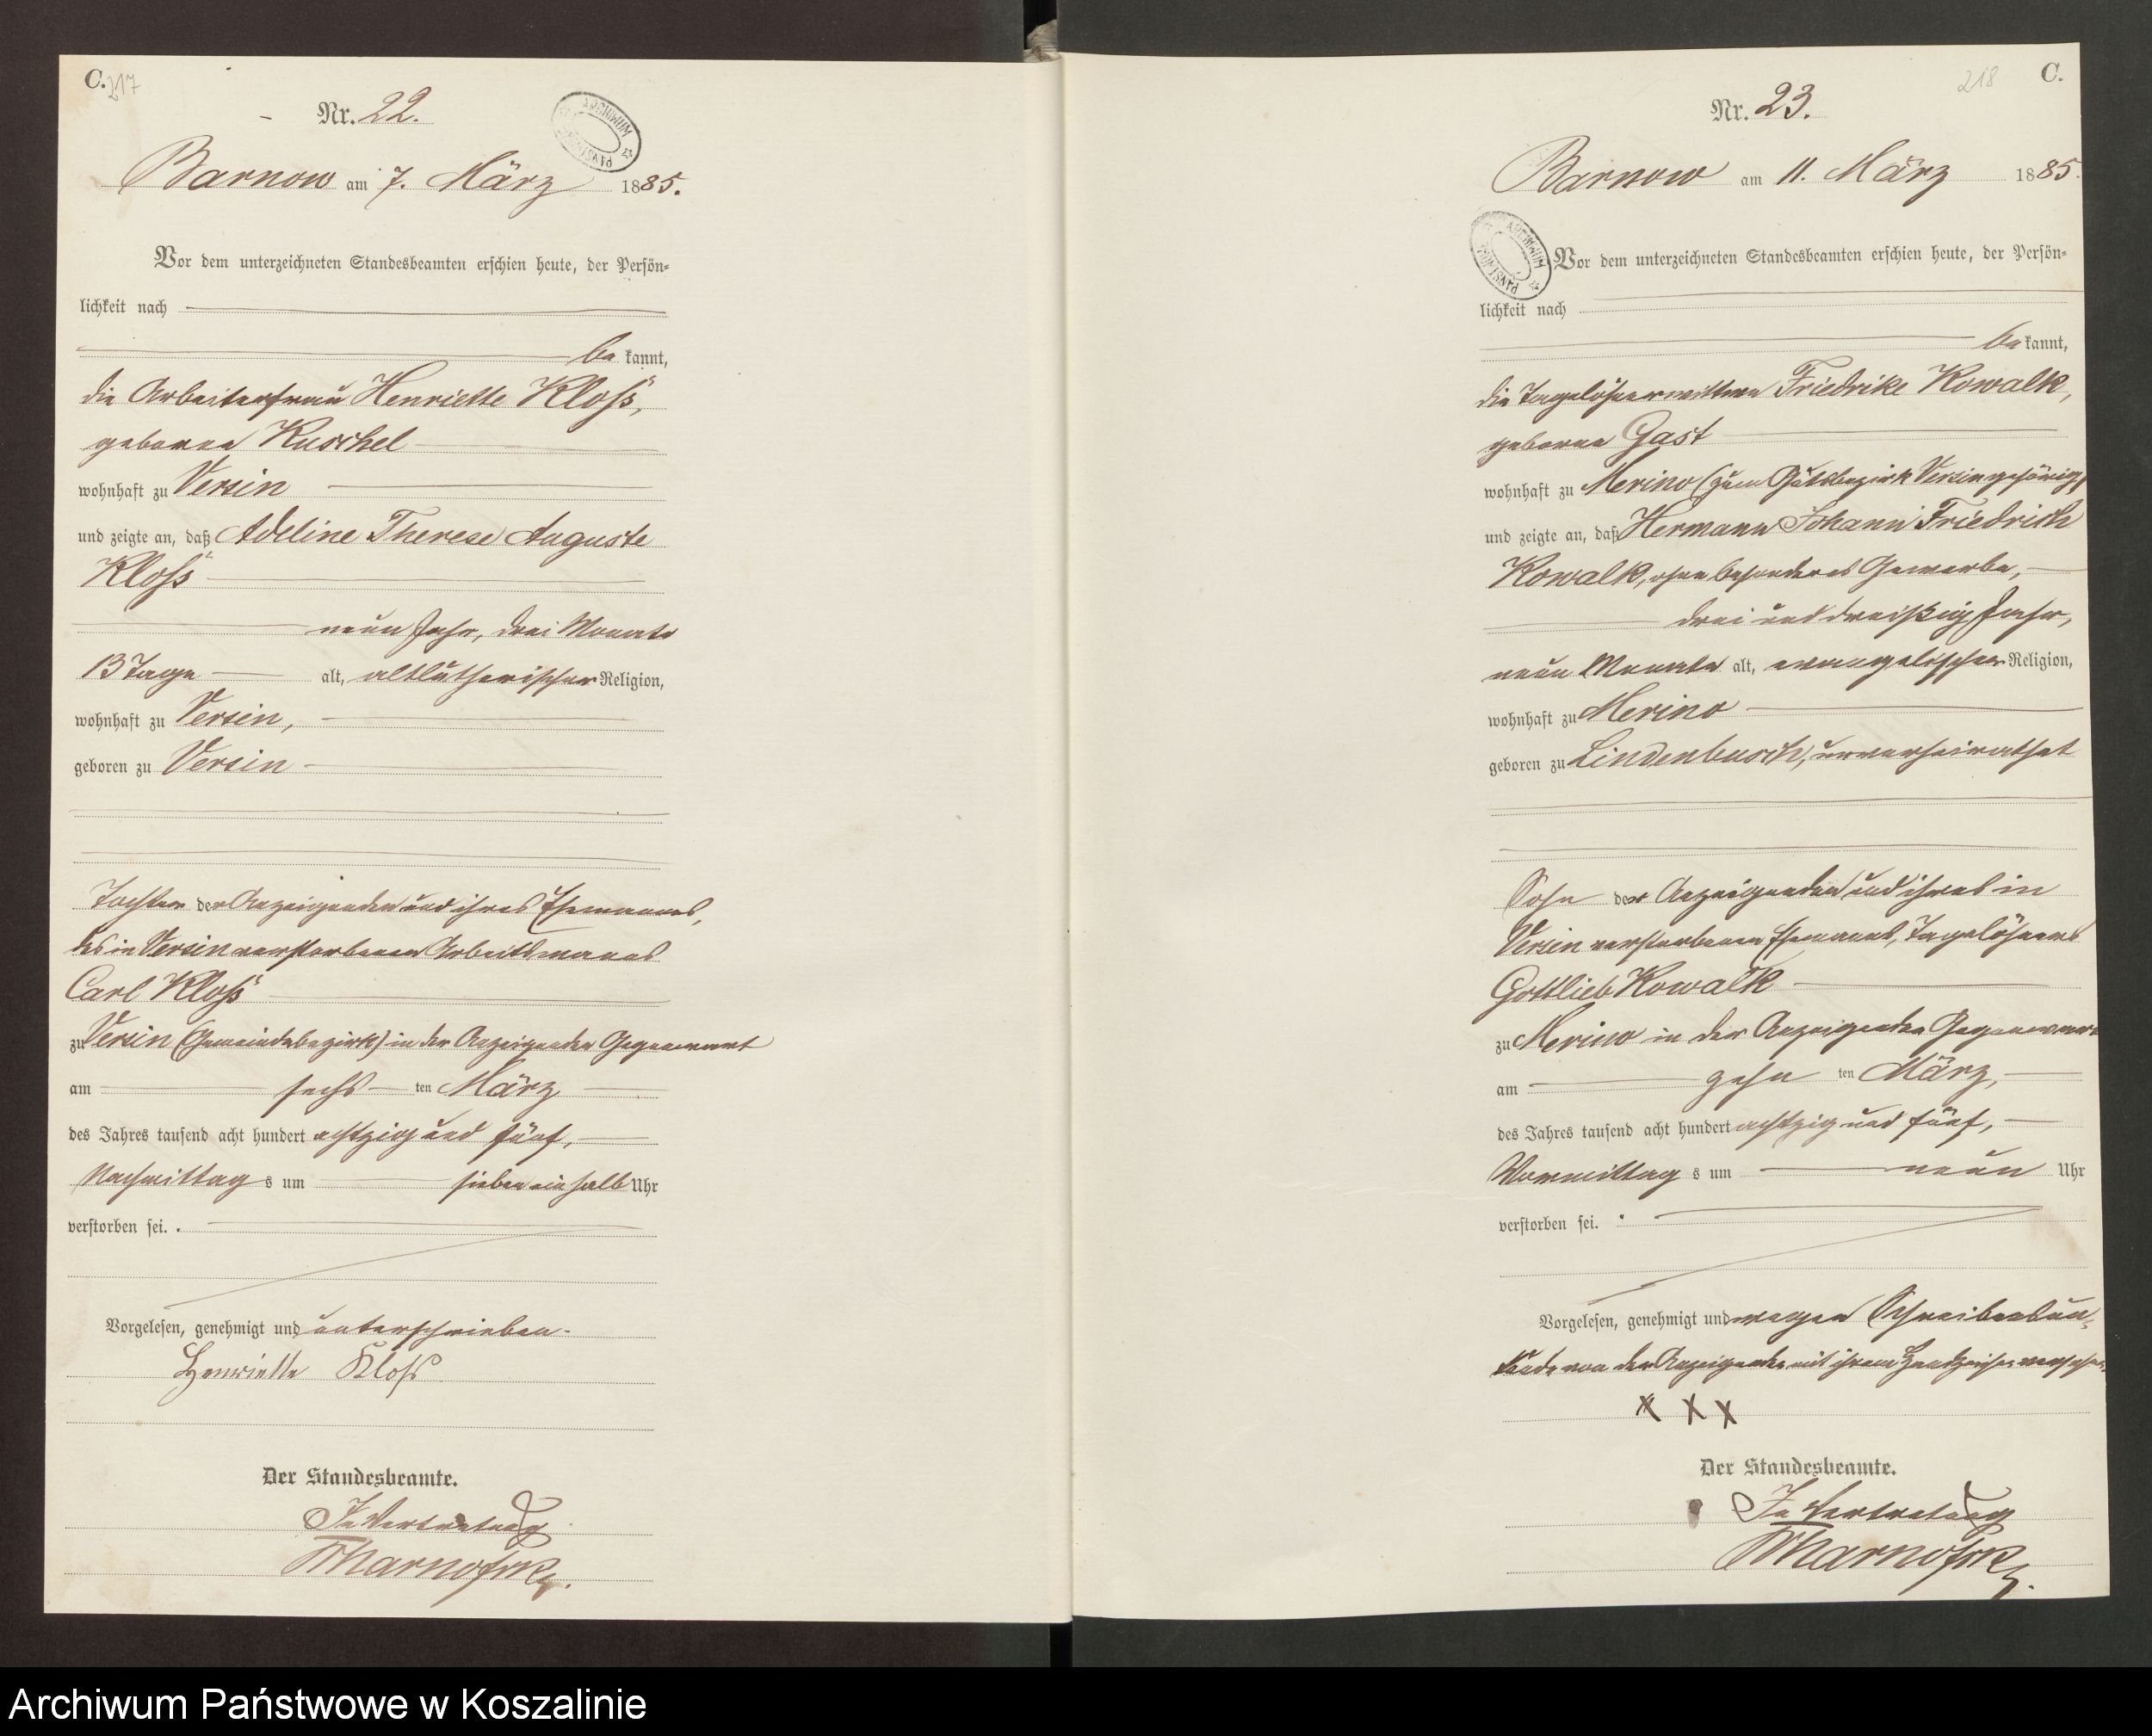 C. 217
Nr. 22.
ARCHIWUM PAŃSTWOWE
Barnow am 7. März 1885.
Vor dem unterzeichneten Standesbeamten erschien heute, der Persön-
lichkeit nach
be kannt,
die Arbeiterfrau Henriette Kloß,
geborene Kuschel
wohnhaft zu Versin
und zeigte an, daß Adeline Therese Auguste
Kloß
neun Jahr, drei Monate
13 Tage alt, altlutherischer Religion,
wohnhaft zu Versin,
geboren zu Versin
Tochter der Anzeigenden und ihres Ehemannes,
des in Versin verstorbenen Arbeitsmannes
Carl Kloß
zu Versin (Gemeindebezirk) in der Anzeigenden Gegenwart
am sechs ten März
des Jahres tausend acht hundert achtzig und fünf,
Nachmittag s um sieben ein halb Uhr
verstorben sei.
Vorgelesen, genehmigt und unterschrieben.
Henriette Kloß
Der Standesbeamte.
In Vertretung
218 C.
Nr. 23.
Barnow am 11. März 1885.
ARCHIWUM PAŃSTWOWE
Vor dem unterzeichneten Standesbeamten erschien heute, der Persön-
lichkeit nach
be kannt,
die Tagelöhnerwittwe Friedrike Kowalk,
geborene Gast
wohnhaft zu Merino (zum Gutsbezirk Versin gehörig)
und zeigte an, daß Hermann Johann Friedrich
Kowalk, ohne besonderes Gewerbe,
drei und dreißig Jahr,
neun Monate alt, evangelischer Religion,
wohnhaft zu Merino
geboren zu Lindenbusch, unverheirathet
Sohn der Anzeigenden und ihres in
Versin verstorbenen Ehemanns, Tagelöhners
Gottlieb Kowalk
zu Merino in der Anzeigenden Gegenwart
am zehn ten März,
des Jahres tausend acht hundert achtzig und fünf,
Vormittag s um neun Uhr
verstorben sei.
Vorgelesen, genehmigt und wegen Schreibensun-
kunde von der Anzeigenden mit ihrem Handzeichen versehen.
X X X
Der Standesbeamte.
In Vertretung
Archiwum Państwowe w Koszalinie